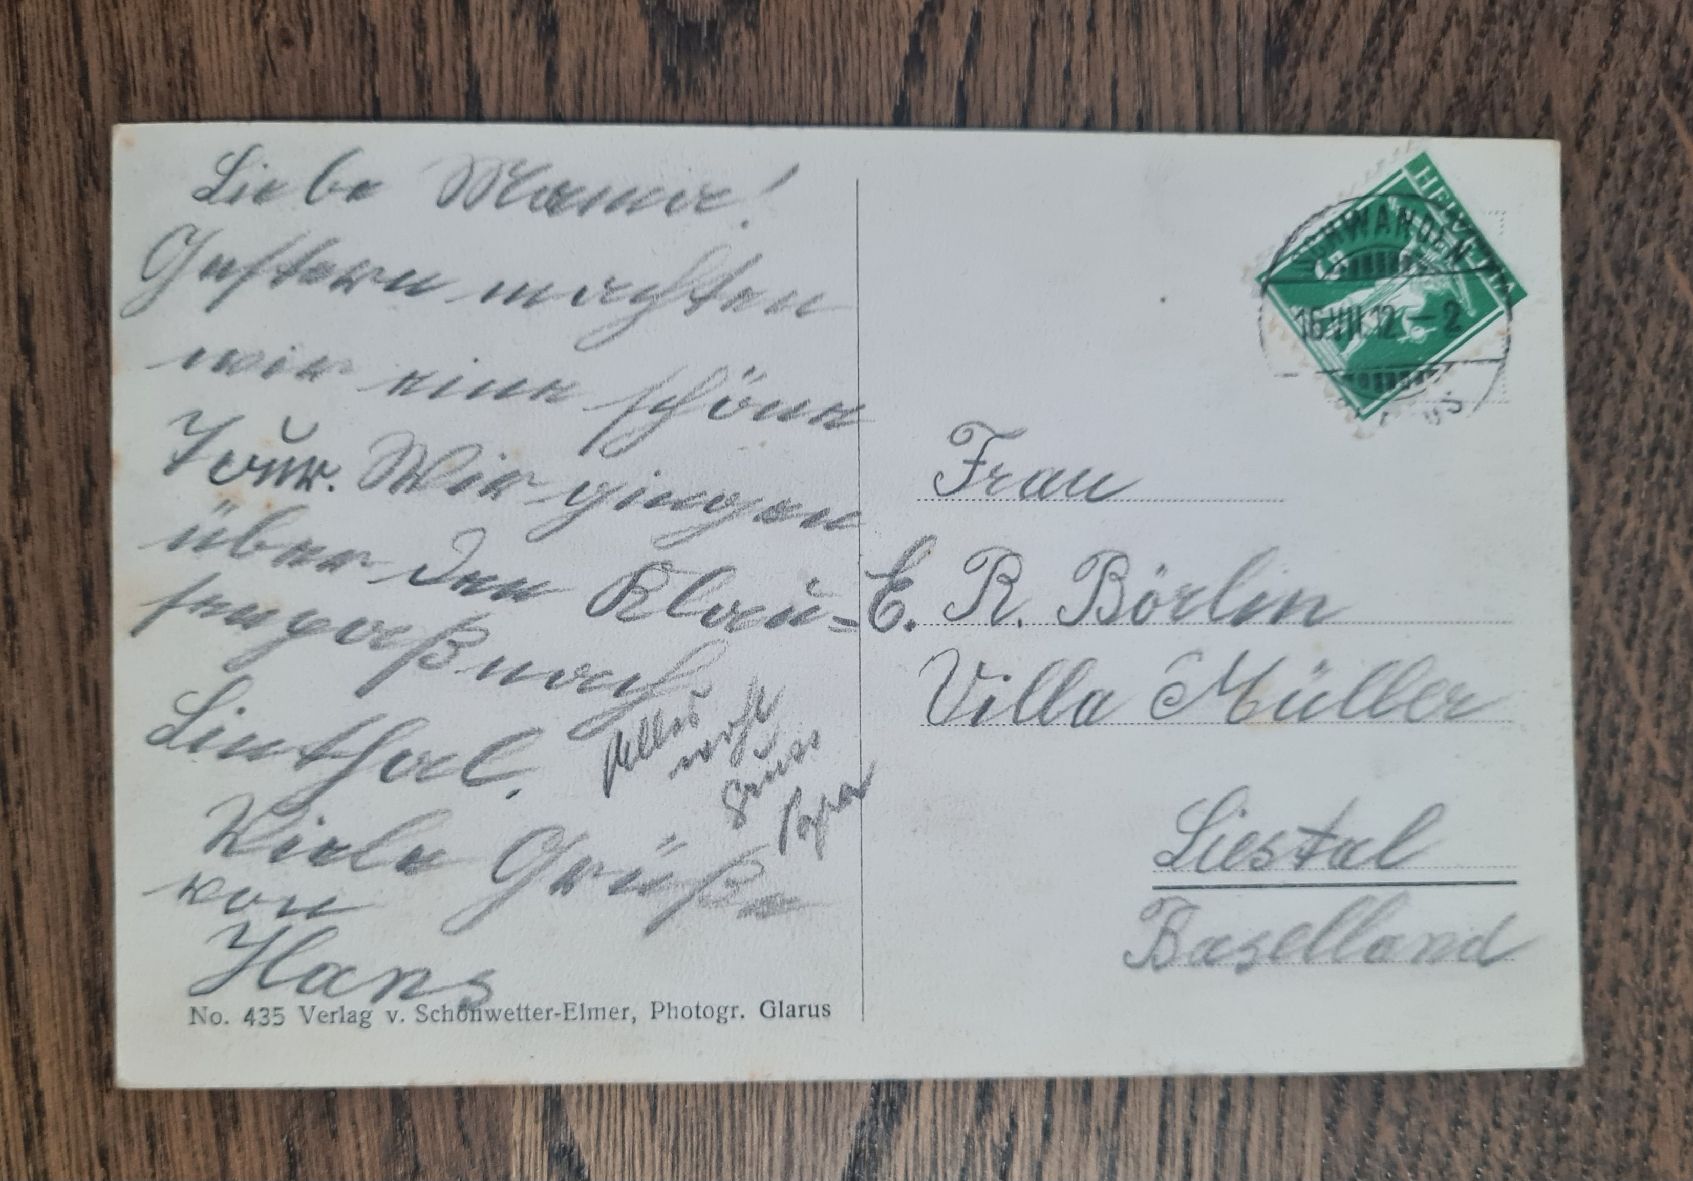 Liebe Mama!
Gestern machten
wir eine schöne
Tour. Wir gingen
über den Klau=
senpaß nach
Linthal.
Alles
wohl
Gruss
Papa
Viele Grüße
von
Hans
No. 435 Verlag v. Schönwetter-Elmer, Photogr. Glarus
HELVETIA
SCHWANDEN
16.VII.12.-2
Frau
E. R. Börlin
Villa Müller
Liestal
Baselland